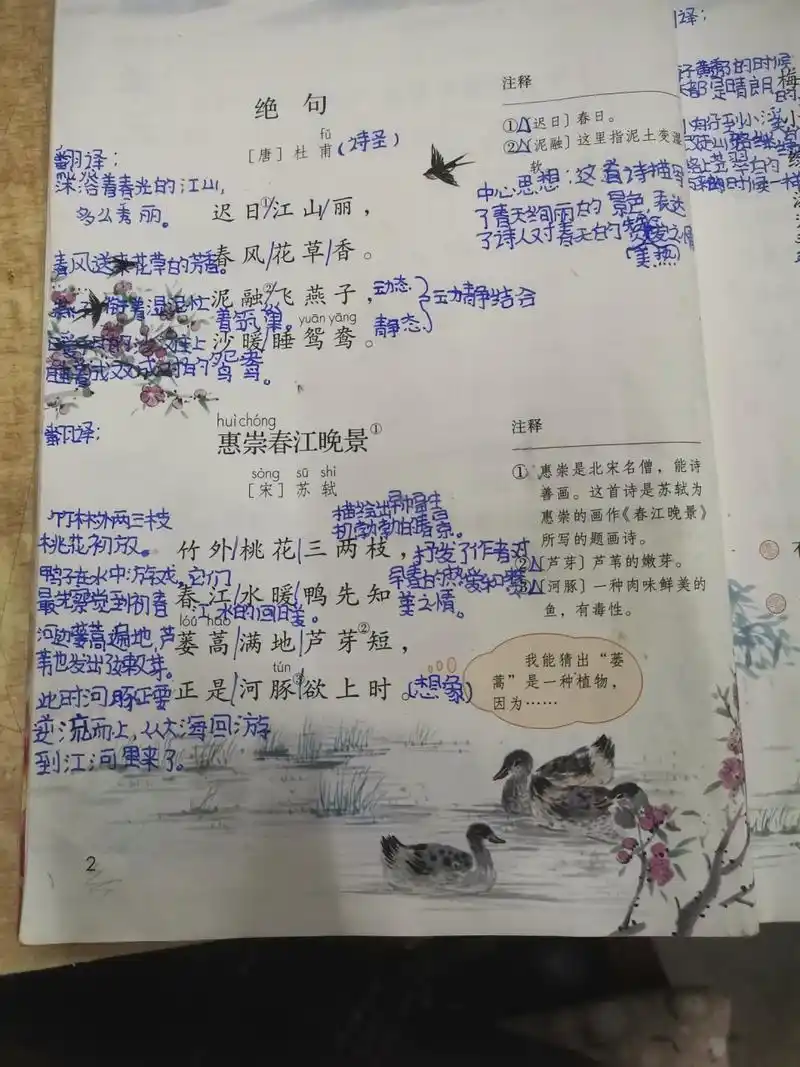 绝句
fǔ
[唐]杜甫(诗圣)
翻译：
沐浴着春光的江山，
多么秀丽。
迟日①/江山/丽，
春风送来花草的芳香。
春风/花草/香。
着湿泥忙
着筑巢。
泥融②/飞燕子，
动态
静态
动静结合
yuān yāng
沙暖/睡鸳鸯。
成双成对的鸳鸯。
注释
①[迟日]春日。
②[泥融]这里指泥土变湿
软。
中心思想：这首诗描写
了春天明丽的景色，表达
了诗人对春天的热爱之情
翻译：
huì chóng
惠崇春江晚景①
sòng sū shì
[宋]苏轼
竹林外两三枝
桃花初放。
描绘出早春生
机勃勃的春景。
竹外/桃花/三两枝，
抒发了作者对
早春的热爱和赞
美之情。
鸭子在水中游戏，它们
最先察觉到初春
江水的回暖。
春江/水暖/鸭先知
lóu hāo
河边蒌蒿遍地，芦
苇也发出了嫩芽。
蒌蒿/满地/芦芽②短，
tún
此时河豚正要
逆流而上，从大海回游
到江河里来了。
正是/河豚③欲上时。(想象)
注释
① 惠崇是北宋名僧，能诗
善画。这首诗是苏轼为
惠崇的画作《春江晚景》
所写的题画诗。
②[芦芽]芦苇的嫩芽。
③[河豚]一种肉味鲜美的
鱼，有毒性。
我能猜出“蒌
蒿”是一种植物，
因为……
2
译：